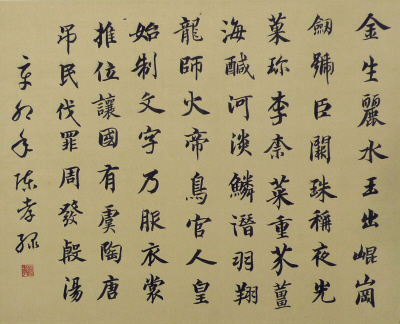 金生麗水玉出崐岡
劔號巨闕珠稱夜光
菓珍李柰菜重芥薑
海醎河淡鱗潛羽翔
龍師火帝鳥官人皇
始制文字乃服衣裳
推位讓國有虞陶唐
吊民伐罪周發殷湯
辛卯年陳孝